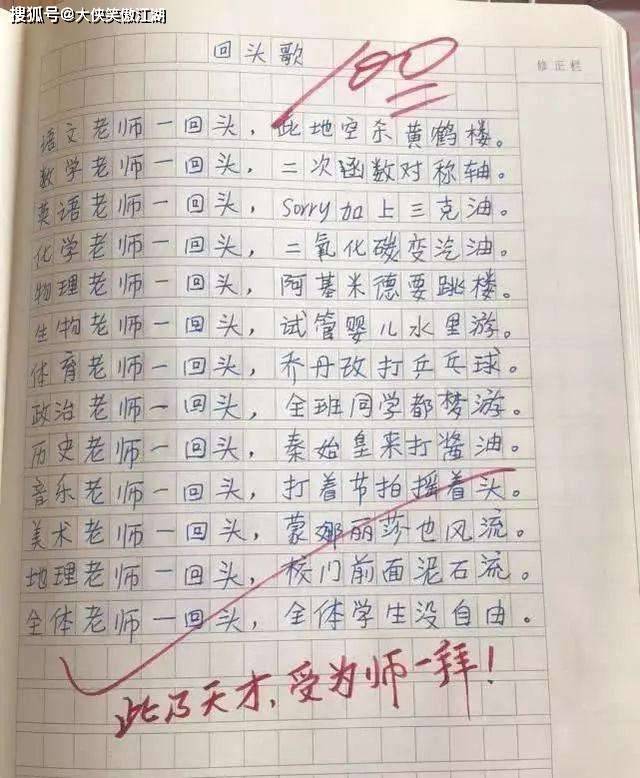 搜狐号@大侠笑傲江湖
回头歌
100
修正栏
语文老师一回头，此地空杀黄鹤楼。
数学老师一回头，二次函数对称轴。
英语老师一回头，sorry加上三克油。
化学老师一回头，二氧化碳变汽油。
物理老师一回头，阿基米德要跳楼。
生物老师一回头，试管婴儿水里游。
体育老师一回头，乔丹改打乒乓球。
政治老师一回头，全班同学都梦游。
历史老师一回头，秦始皇来打酱油。
音乐老师一回头，打着节拍摇着头。
美术老师一回头，蒙娜丽莎也风流。
地理老师一回头，校门前面泥石流。
全体老师一回头，全体学生没自由。
此乃天才，受为师一拜！